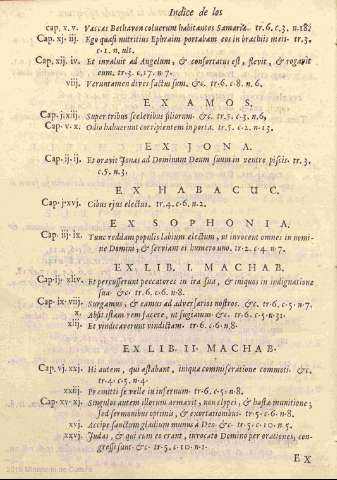 Indice de los
cap. x. v. Vaccas Bethaven coluerunt habitantes Samariæ. tr. 6. c. 3. n. 18.
Cap. xj. iij. Ego quasi nutritius Ephraim portabam eos in brachiis meis. tr. 3.
c. 1. n. ult.
Cap. xij. iv. Et invaluit ad Angelum, & confortatus est, flevit, & rogavit
eum. tr. 3. c. 17. n. 7.
viij. Verumtamen dives factus sum, &c. tr. 6. c. 8. n. 6.
EX AMOS.
Cap. j. xiij. Super tribus sceleribus filiorum. &c. tr. 5. c. 3. n. 6,
Cap. v. x. Odio habuerunt corripientem in porta. tr. 5. c. 2. n. 13.
EX JONA.
Cap. ij. ij. Et oravit Jonas ad Dominum Deum suum in ventre piscis. tr. 3.
c. 5. n. 3.
EX HABACUC.
Cap. j. xvj. Cibus ejus electus. tr. 4. c. 6. n. 2.
EX SOPHONIA.
Cap. iij. ix. Tunc reddam populis labium electum, ut invocent omnes in nomi-
ne Domini, & serviant ei humero uno. tr. 2. c. 4. n. 7.
EX LIB. I. MACHAB.
Cap. ij. xliv. Et percusserunt peccatores in ira sua, & iniquos in indignatione
sua &c. tr. 6. c. 6. n. 8.
Cap. ix. viij. Surgamus, & eamus ad adversarios nostros. &c. tr. 6. c. 5. n. 7.
x. Absit istam rem facere, ut fugiamus. &c. tr. 6. c. 5. n. 31.
xlij. Et vindicaverunt vindictam. tr. 6. c. 6. n. 8.
EX LIB. II. MACHAB.
Cap. vj. xxj. Hi autem, qui astabant, iniqua commiseratione commoti. &c.
tr. 4. c. 5. n. 4.
xxiij. Præmitti se velle in infernum. tr. 6. c. 5. n. 8.
Cap. xv. xj. Singulos autem illorum armavit, non clypei, & hastæ munitione;
sed sermonibus optimis, & exortationibus. tr. 5. c. 6. n. 8.
xvj. Accipe sanctum gladium munus a Deo &c. tr. 5. c. 10. n. 5.
xxvj. Judas, & qui cum eo erant, invocato Domino per orationes, con-
gressi sunt. tr. 5. c. 10. n. 1.
EX